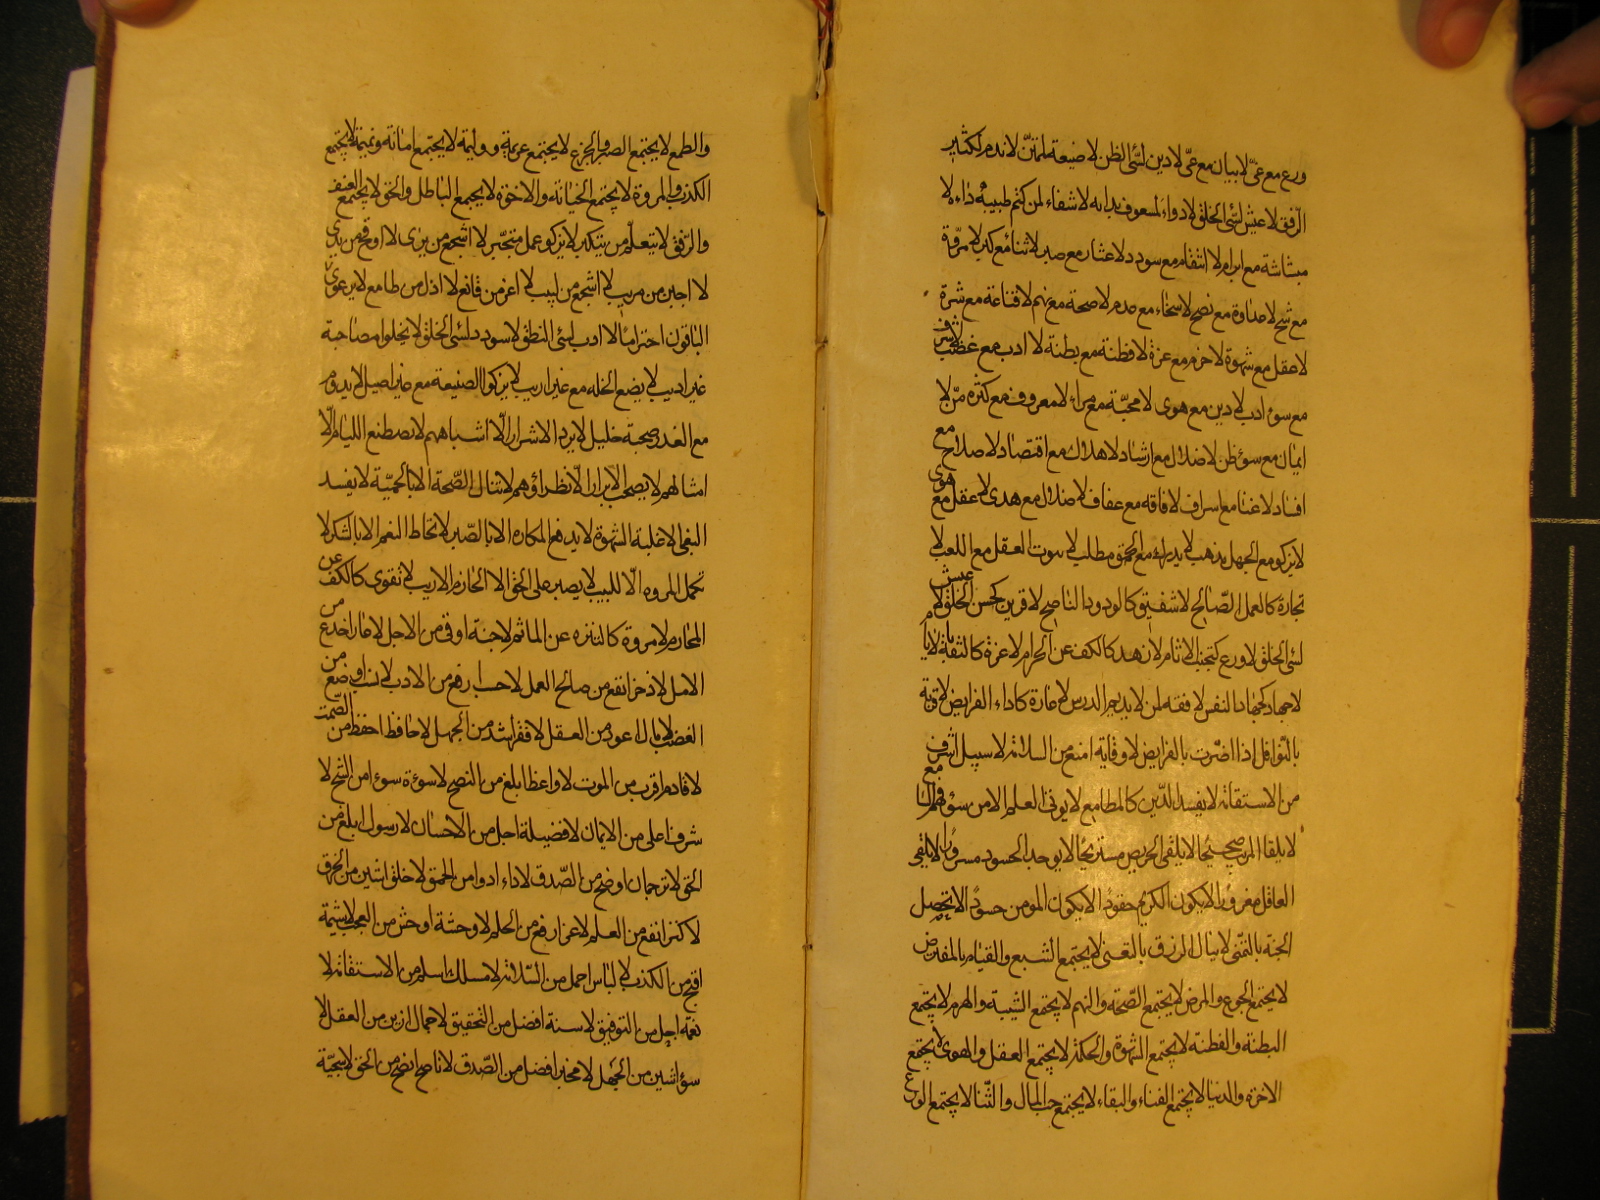 ورع مع غىّ لا بيان مع عىّ لا دين لسيّئ الظن لا صنيعة لممتنّ لا ندم لكثير
الرّفق لا عيش لسيّئ الخلق لا دواء لمشعوف بدائه لا شفاء لمن كتم طبيبه داءه لا
بشاشة مع ابرام لا انتقام مع سودد لا عثار مع صبر لا ثناء مع كبر لا مروّة
مع شح لا عداوة مع نصح لا سخاء مع عدم لا صحة مع نهم لا قناعة مع شره
لا عقل مع شهوة لا حزم مع غرة لا فطنة مع بطنة لا ادب مع غضب لا شرف
مع سوء ادب لا دين مع هوى لا محبّة مع مراء لا معروف مع كثره منّ لا
ايمان مع سوء ظن لا ضلال مع ارشاد لا هلاك مع اقتصاد لا صلاح مع
افساد لا غنا مع اسراف لا فاقه مع عفاف لا ضلال مع هدى لا عقل مع هوى
لا يزكو مع الجهل مذهب لا يدرك مع الحمق مطلب لا يثوب العقل مع اللعب لا
تجارة كالعمل الصّالح لا شفيق كالودود الناصح لا قرين كحسن الخلق لا عيش
لسئى الخلق لا ورع كتجنب الاثام لا زهد كالكف عن الحرام لا عزة كالثقة بالله
لا جهاد كجهاد النفس لا فقه لمن لا يديم الدرس لا عبادة كاداء الفرايض لا قربة
بالنوافل اذا اضرّت بالفرايض لا وقاية امنع من السلامة لا سبيل اشرف
من الاستقامة لا يفسد الدّين كالمطامع لا يوتى العلم الا من سوء فهم السامع
لا يلقا المريب صحيحًا لا يلفى الحريص مستريحًا لا يوجد الحسود مسرورًا لا يلقى
العاقل مغرورًا لا يكون الكريم حقودًا لا يكون المومن حسودًا لا تحصل
الجنة بالتمنّى لا ينال الرزق بالتعنى لا يجتمع الشبع والقيام بالمفترض
لا يجتمع الجوع والمرض لا يجتمع الصّحة والنهم لا يجتمع الشيبة والهرم لا يجتمع
البطنة والفطنة لا يجتمع الشهوة والحكمة لا يجتمع العقل والهوى لا يجتمع
الاخرة والدنيا لا يجتمع الفناء والبقاء لا يجتمع حب المال والثّنا لا يجتمع الورع
والطمع لا يجتمع الصبر والجزع لا يجتمع عزيمة ووليمة لا يجتمع امانة ونميمة لا يجتمع
الكذب والمروة لا يجتمع الخيانة والاخوّة لا يجتمع الباطل والحق لا يجتمع العنف
والرّفق لا يتعلّم من يتكبر لا يزكو عمل متجبّر لا اشجع من برى لا اوقح من بذى
لا اجبن من مريب لا اشجع من لبيب لا اعز من قانع لا اذل من طامع لا يرعوى
الباقون اجترامًا لا ادب لسيّئ النطق لا سودد لسئى الخلق لا يحلوا مصاحبة
غير اديب لا يضع الخله مع غير اريب لا يزكوا الصنيعة مع غير اصيل لا يدوم
مع الغدر صحبة خليل لا يودّ الاشرار الّا اشباههم لا تصطنع الليام الّا
امثالهم لا يصحب الابرار الّا نظراؤهم لا تنال الصّحة الا بالحميّة لا يفسد
التقى الا غلبة الشهوة لا يدفع المكاره الا بالصّبر لا تحاط النعم الا بالشكر لا
تكمل المروه الّا للبيب لا يصبر على الحق الا الحازم الاريب لا تقوى كالكف عن
المحارم لا مروة كالتنزه عن الماثم لا جنة اوقى من الاجل لا غار اخدع من
الامل لا ذخر انفع من صالح العمل لا حسب ارفع من الادب لا نسب اوضع من
الغضب لا مال اعود من العقل لا فقر اشد من الجهل لا حافظ احفظ من الصّمت
لا قادم اقرب من الموت لا واعظ ابلغ من النصح لا سوءة سوء من الشح لا
شرف اعلى من الايمان لا فضيلة اجل من الاحسان لا رسول ابلغ من
الحق لا ترجمان اوضح من الصّدق لا داء ادوا من الحمق لا خلق اشين من الخرق
لا كنز انفع من العلم لا عز ارفع من الحلم لا وحشة اوحش من العجب لا شيمة
اقبح من الكذب لا لباس اجمل من السّلامة لا مسلك اسلم من الاستقامة لا
نعمة اجل من التوفيق لا سنة افضل من التحقيق لا جمال ازين من العقل لا
سوء اشين من الجهل لا مخبر افضل من الصّدق لا ناصح انصح من الحق لا سجيّة